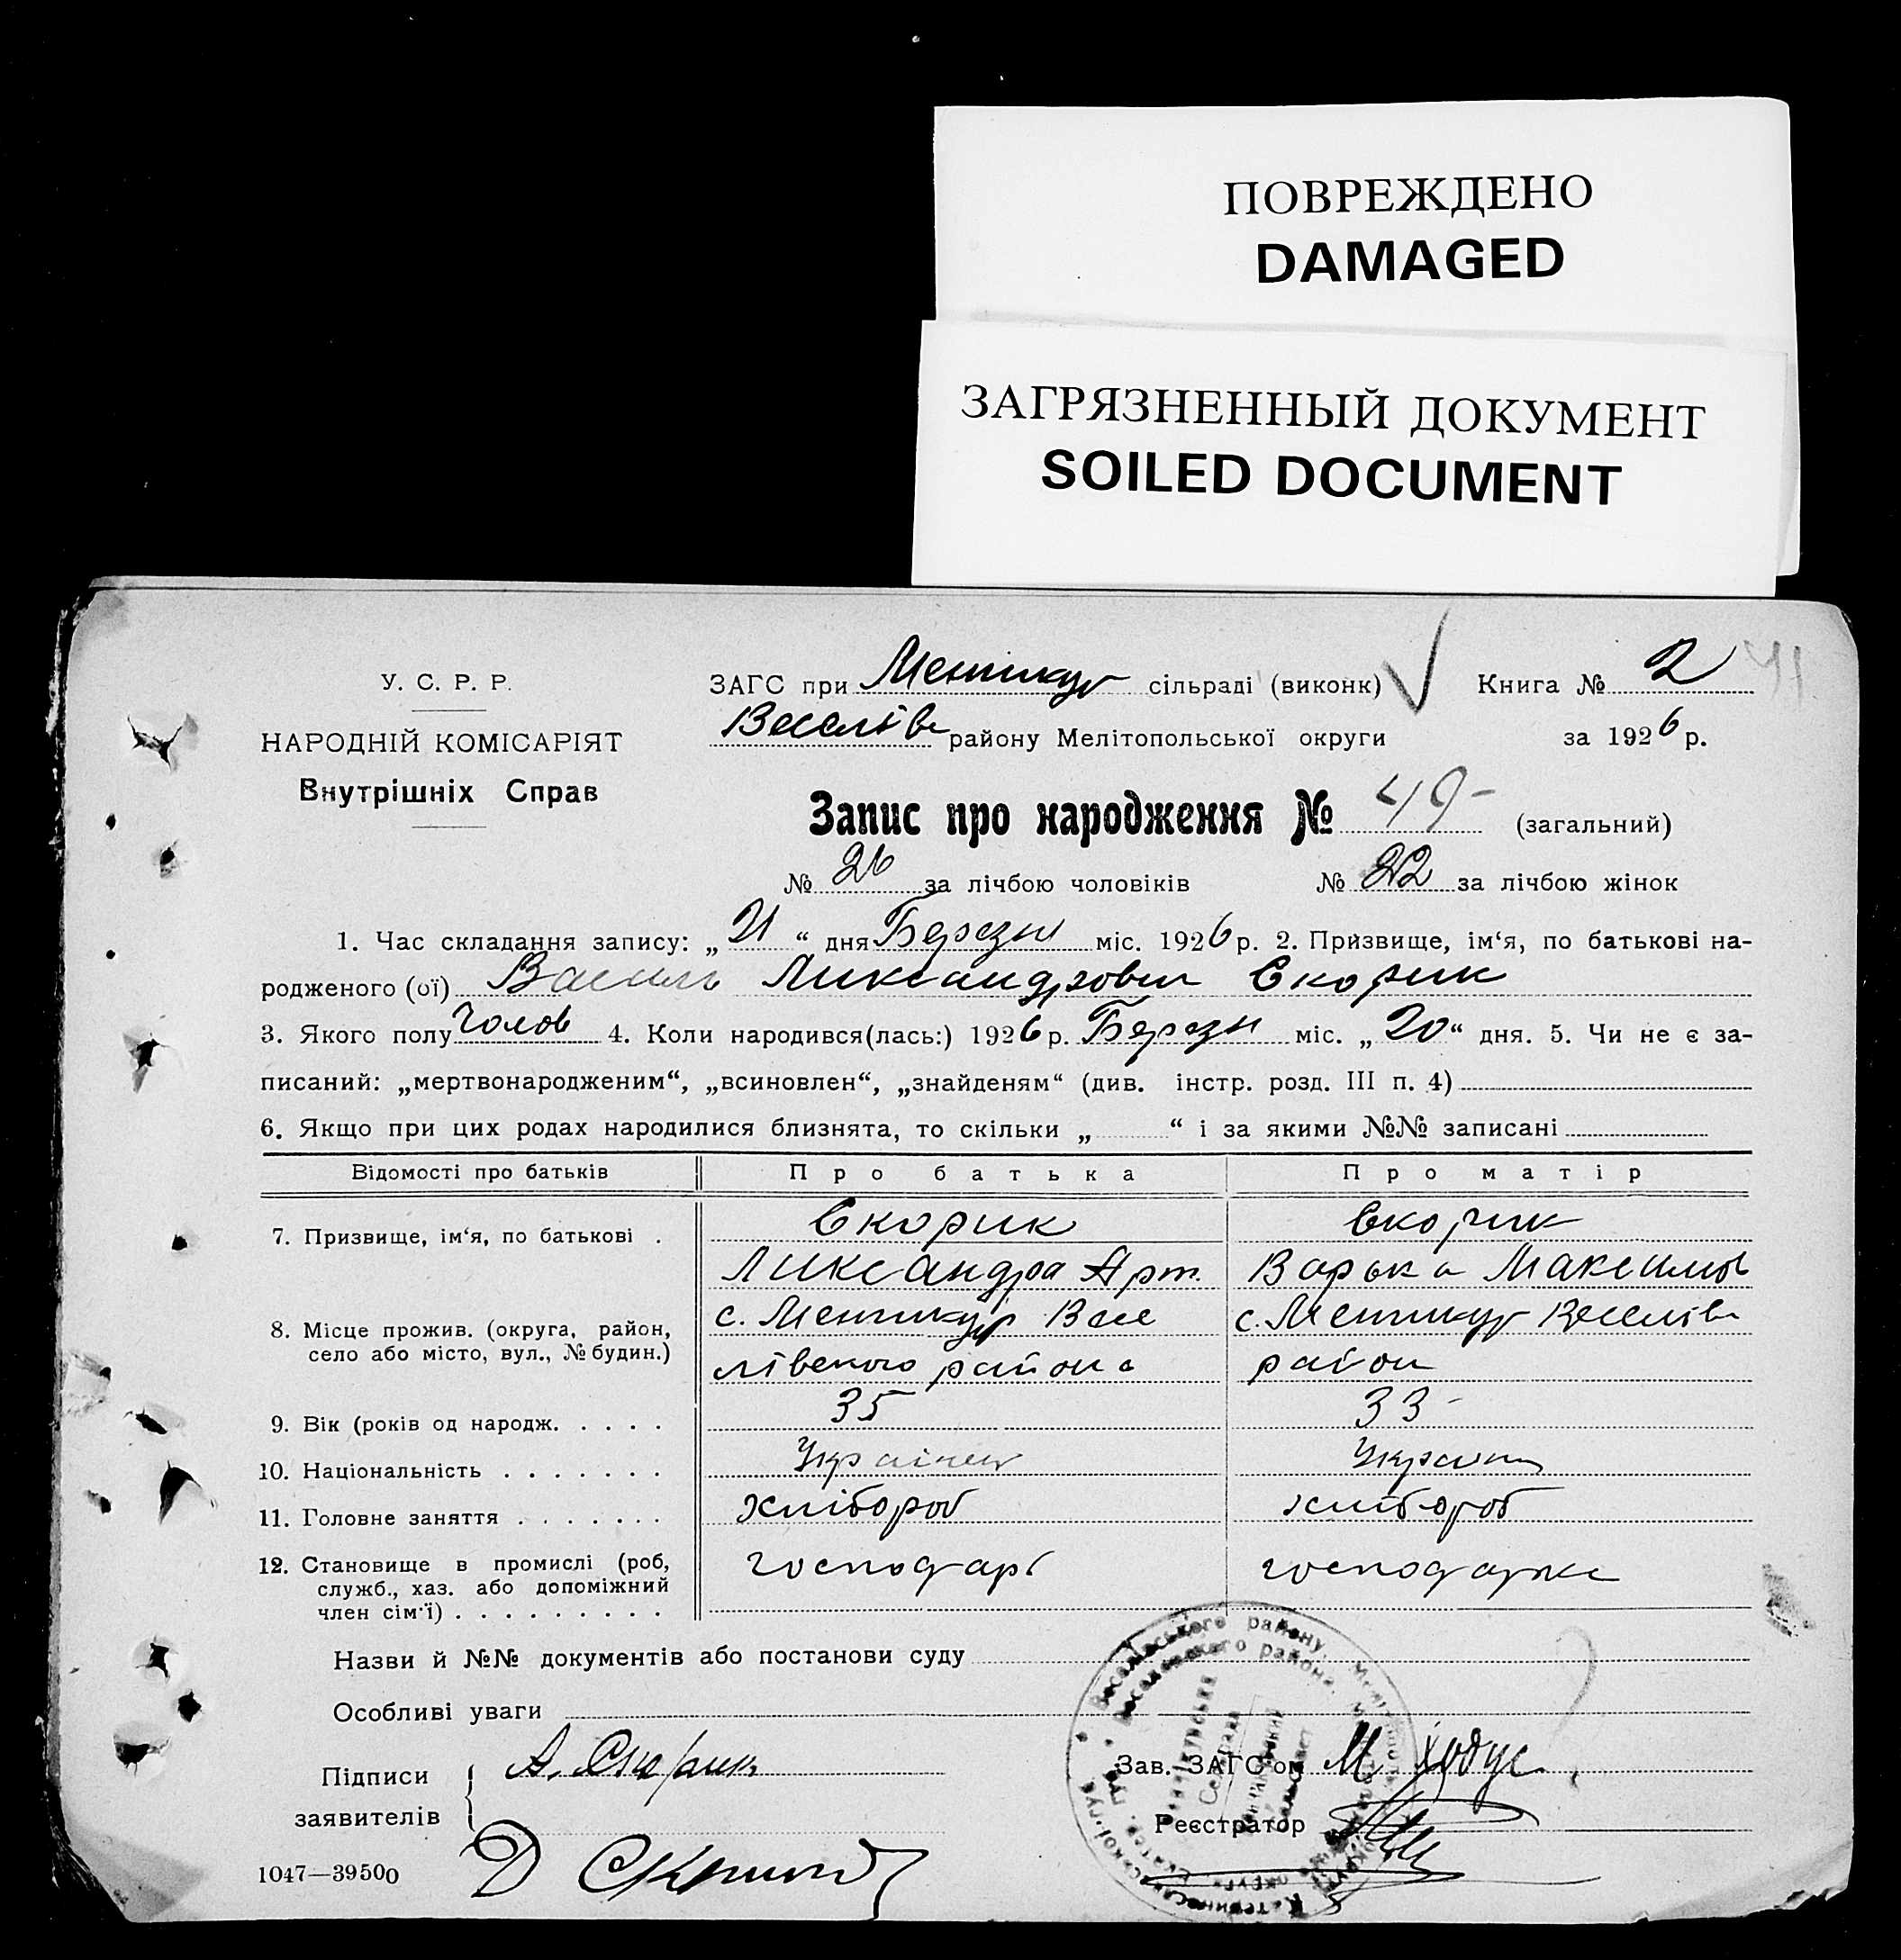 ПОВРЕЖДЕНО
DAMAGED
ЗАГРЯЗНЕННЫЙ ДОКУМЕНТ
SOILED DOCUMENT
У. С. Р. Р.
НАРОДНІЙ КОМІСАРІЯТ
Внутрішніх Справ
ЗАГС при Ментикур сільраді (виконк) Книга № 2
Веселів району Мелітопольської округи за 1926 р.
Запис про народження № 49 (загальний)
№ 26 за лічбою чоловіків № 22 за лічбою жінок
1. Час складання запису: „21“ дня Березн міс. 1926 р. 2. Призвище, ім‘я, по батькові на-
родженого (ої) Василь Ликсандрович Скорик
3. Якого полу Чолов 4. Коли народився(лась:) 1926 р. Березн міс. „20“ дня. 5. Чи не є за-
писаний: „мертвонародженим“, „всиновлен“, „знайденям“ (див. інстр. розд. III п. 4)
6. Якщо при цих родах народилися близнята, то скільки „ “ і за якими №№ записані
Відомості про батьків Про батька Про матір
7. Призвище, ім‘я, по батькові . Скорик Скорик
Ликсандра Арт. Варька Максимов
8. Місце прожив. (округа, район, село або місто, вул., № будин.) с. Ментикур Весе с. Ментикур Веселів
лівского района район
9. Вік (років од народж. . . . . 35 33 -
10. Національність . . . . . . . Українец Україн
11. Головне заняття . . . . . . . хлібороб хлібороб
12. Становище в промислі (роб, служб., хаз. або допоміжний член сім‘ї) . . . . . . . . . господарь господарка
Назви й №№ документів або постанови суду
Особливі уваги
Підписи заявителів А. Скорик
Зав. ЗАГС‘ом М
Реєстратор
1047—39500 Д
Веселівського району
Веселовского района
Сельрада